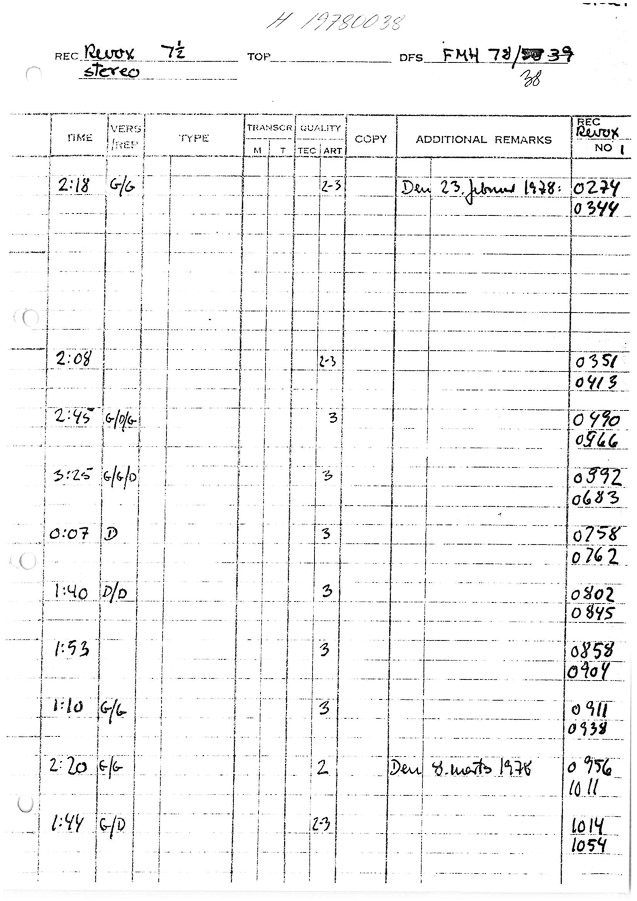 H 19780038
REC Revox 7½ TOP DFS FMH 78/39
stereo 38
TIME VERS/REP TYPE TRANSCR M T QUALITY TEC ART COPY ADDITIONAL REMARKS REC Revox NO 1
2:18 G/G 2-3 Den 23. februar 1978: 0274
0344
2:08 2-3 0351
0413
2:45 G/D/G 3 0490
0566
3:25 G/G/D 3 0592
0683
0:07 D 3 0758
0762
1:40 D/D 3 0802
0845
1:53 3 0858
0904
1:10 G/G 3 0911
0938
2:20 G/G 2 Den 8. marts 1978 0956
1011
1:44 G/D 2-3 1014
1054